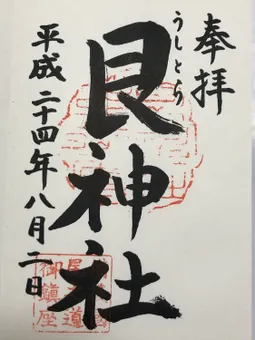 奉拝
うしとら
艮神社
平成二十四年八月二日